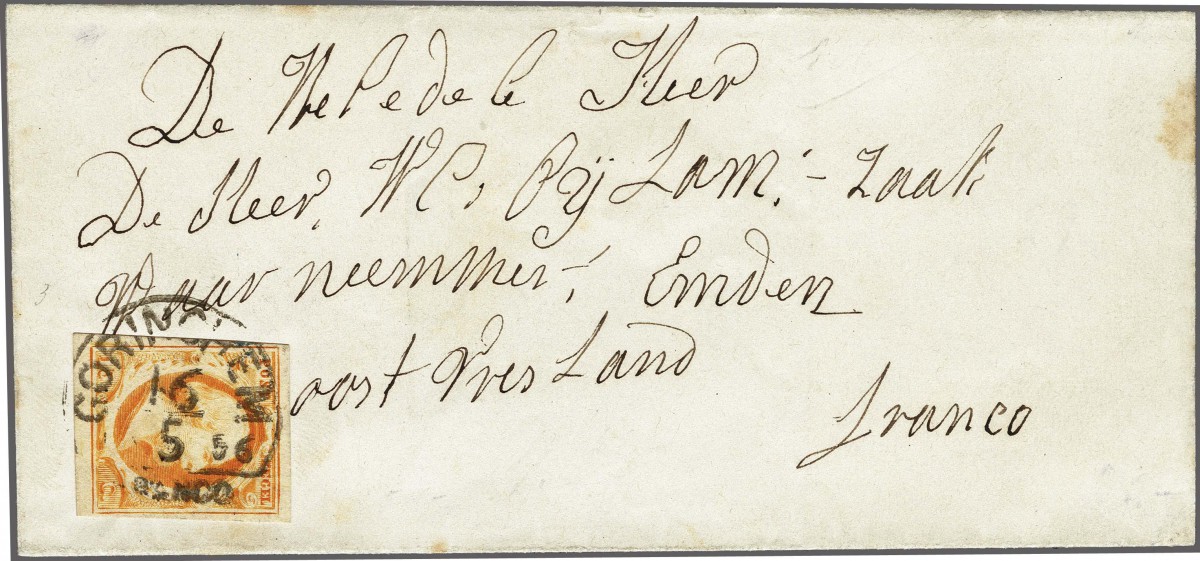 De Wel edele Heer
De Heer, WC, Pÿ Lam,- zaak
Waar neemmer,- Emden
oost Vries Land
franco
GORINCHEM
16
5 56
FRANCO